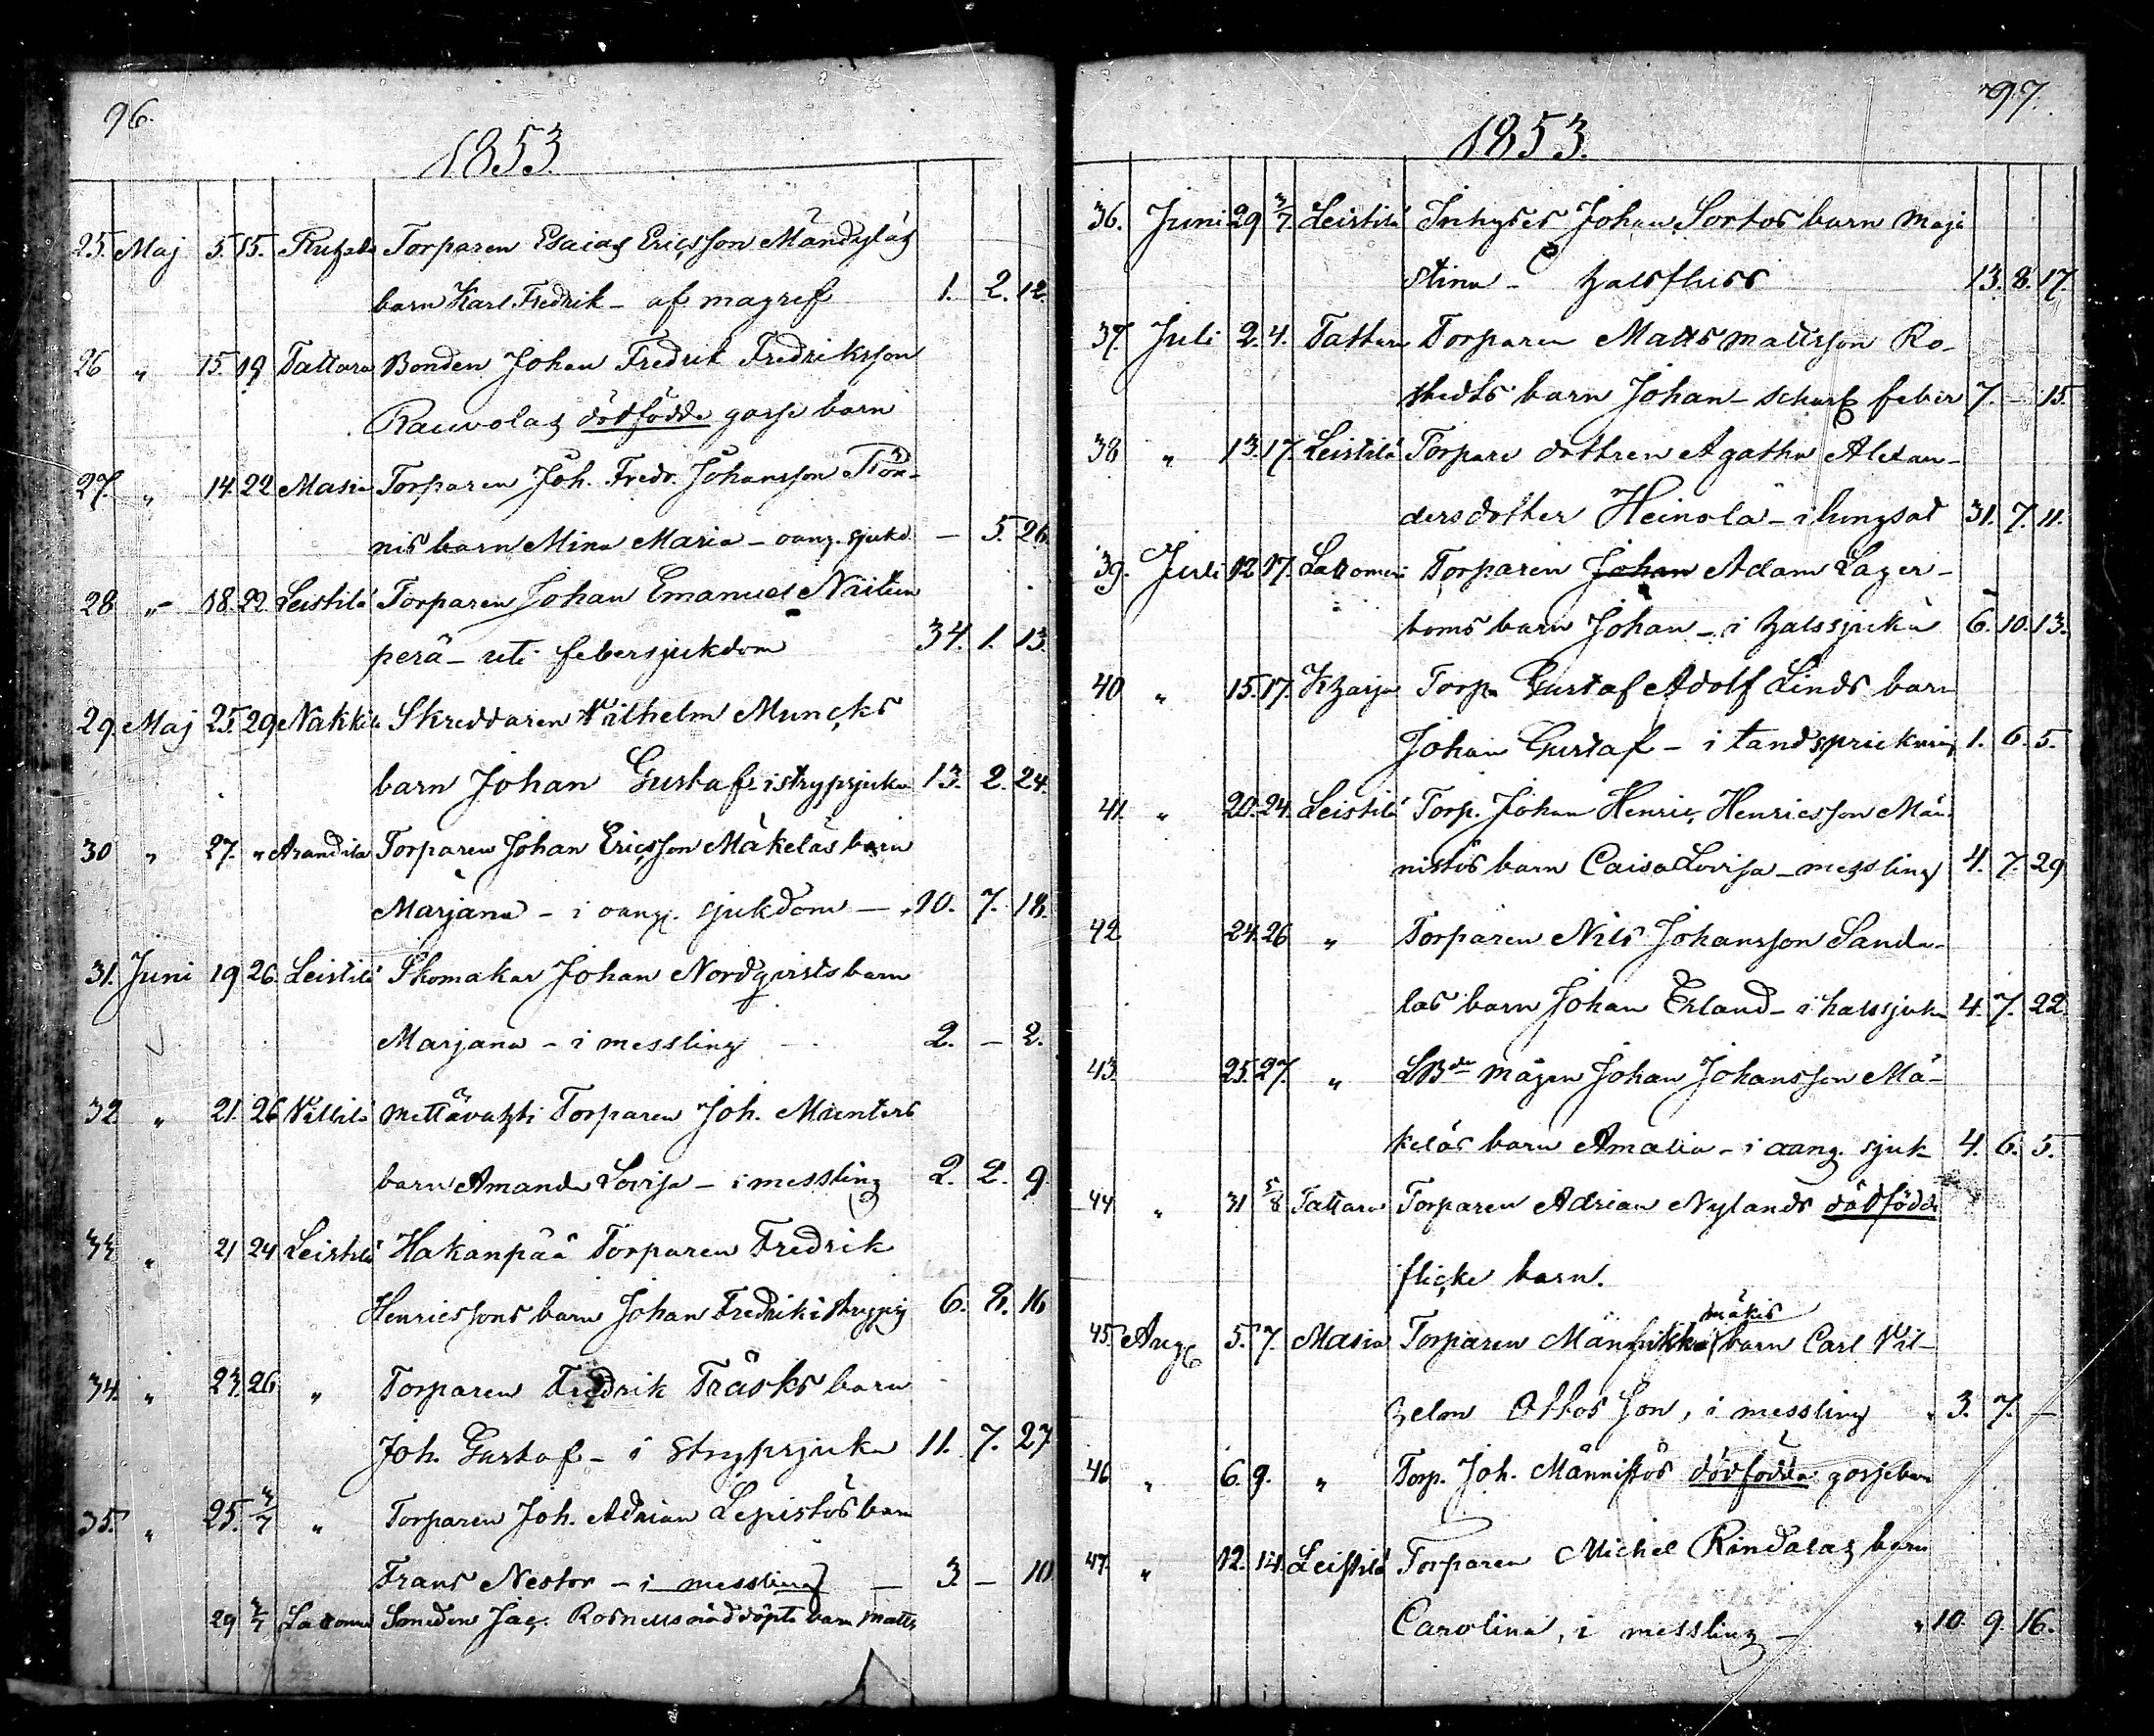 96.
1853.
25. Maj 5. 15. Torparen Esaias Ericsson Mändyläs
barn Karl Fredrik - af magref 1. 2. 12.
26 „ 15. 19 Tattara Bonden Johan Fredrik Fredriksson
Rauvolas dödfödde gosse barn
27. „ 14. 22 Masia Torparen Joh. Fredr. Johansson Tiön-
nis barn Mina Maria - oang. sjukd. - 5. 26.
28 „ 18. 22. Leistilä Torparen Johan Emanuel Niitun
perä - uti febersjukdom 34. 1. 13.
29. Maj 25. 29 Nakkila Skreddaren Wilhelm Muncks
barn Johan Gustaf - i strypsjuka 13. 2. 24.
30 „ 27. „ Arandila Torparen Johan Ericsson Mäkeläs barn
Marjana - i oang. sjukdom - 10. 7. 18.
31. Juni 19 26. Leistilä Skomakar Johan Nordqvists barn
Marjana - i messling 2. - 2.
32. „ 21. 26 Villilä Mettävahti Torparen Joh. Munters
barn Amanda Lovisa - i messling 2. 2. 9.
33 „ 21 24 Leistilä Hakanpää Torparen Fredrik
Henricssons barn Johan Fredrik i strypsj 6. 8. 16
34. „ 23. 26 „ Torparen Fredrik Träsks barn
Joh. Gustaf - i strypsjuka 11. 7. 27
35. „ 25. 3/7 „ Torparen Joh. Adrian Lepistös barn
Frans Nestor - i messling - 3. - 10
29 3/7 Lattome Smeden Jac. Rosnells nöddöpta barn Matts
97.
1853.
36. Juni 29 3/7 Leistilä Inhyses Johan Sortos barn Maja
Stina - halsfluss 13. 8. 17.
37. Juli 2. 4. Tattara Torparen Matts Mattsson Ro-
stedts barn Johan - scharl feber 7. - 15.
38 „ 13. 17. Leistilä Torpare dottren Agatha Alexan-
dersdotter Heinolä - i lungsot 31. 7. 11.
39. Juli 12 17. Lattomeri Torparen Johan Adam Lager-
boms barn Johan - i halssjuka 6. 10. 13.
40 „ 15. 17. Kharja Torp. Gustaf Adolf Linds barn
Johan Gustaf - i tandsprickning 1. 6. 5.
41. „ 20. 24. Leistilä Torp. Johan Henric Henricsson Män-
nistös barn Caisa Lovisa - messling 4. 7. 29
42 24. 26 „ Torparen Nils Johansson Sanda-
las barn Johan Erland - i halssjuka 4. 7. 22.
43. 25. 27. „ LBde mågen Johan Johansson Mä-
keläs barn Amalia - i oang. sjuk 4. 6. 5.
44 „ 31 5/8 Tattara Torparen Adrian Nylands dödfödde
flicke barn.
mäkis
45. Aug 5. 7. Masia Torparen barn Carl Vil-
helm Ottos son, i messling 3. 7. -
46 „ 6. 9. „ Torp. Joh. Männistös dödfödda gossebarn
47. „ 12. 14. Leistilä Torparen Michel Rindalas barn
Carolina, i messling - 10. 9. 16.